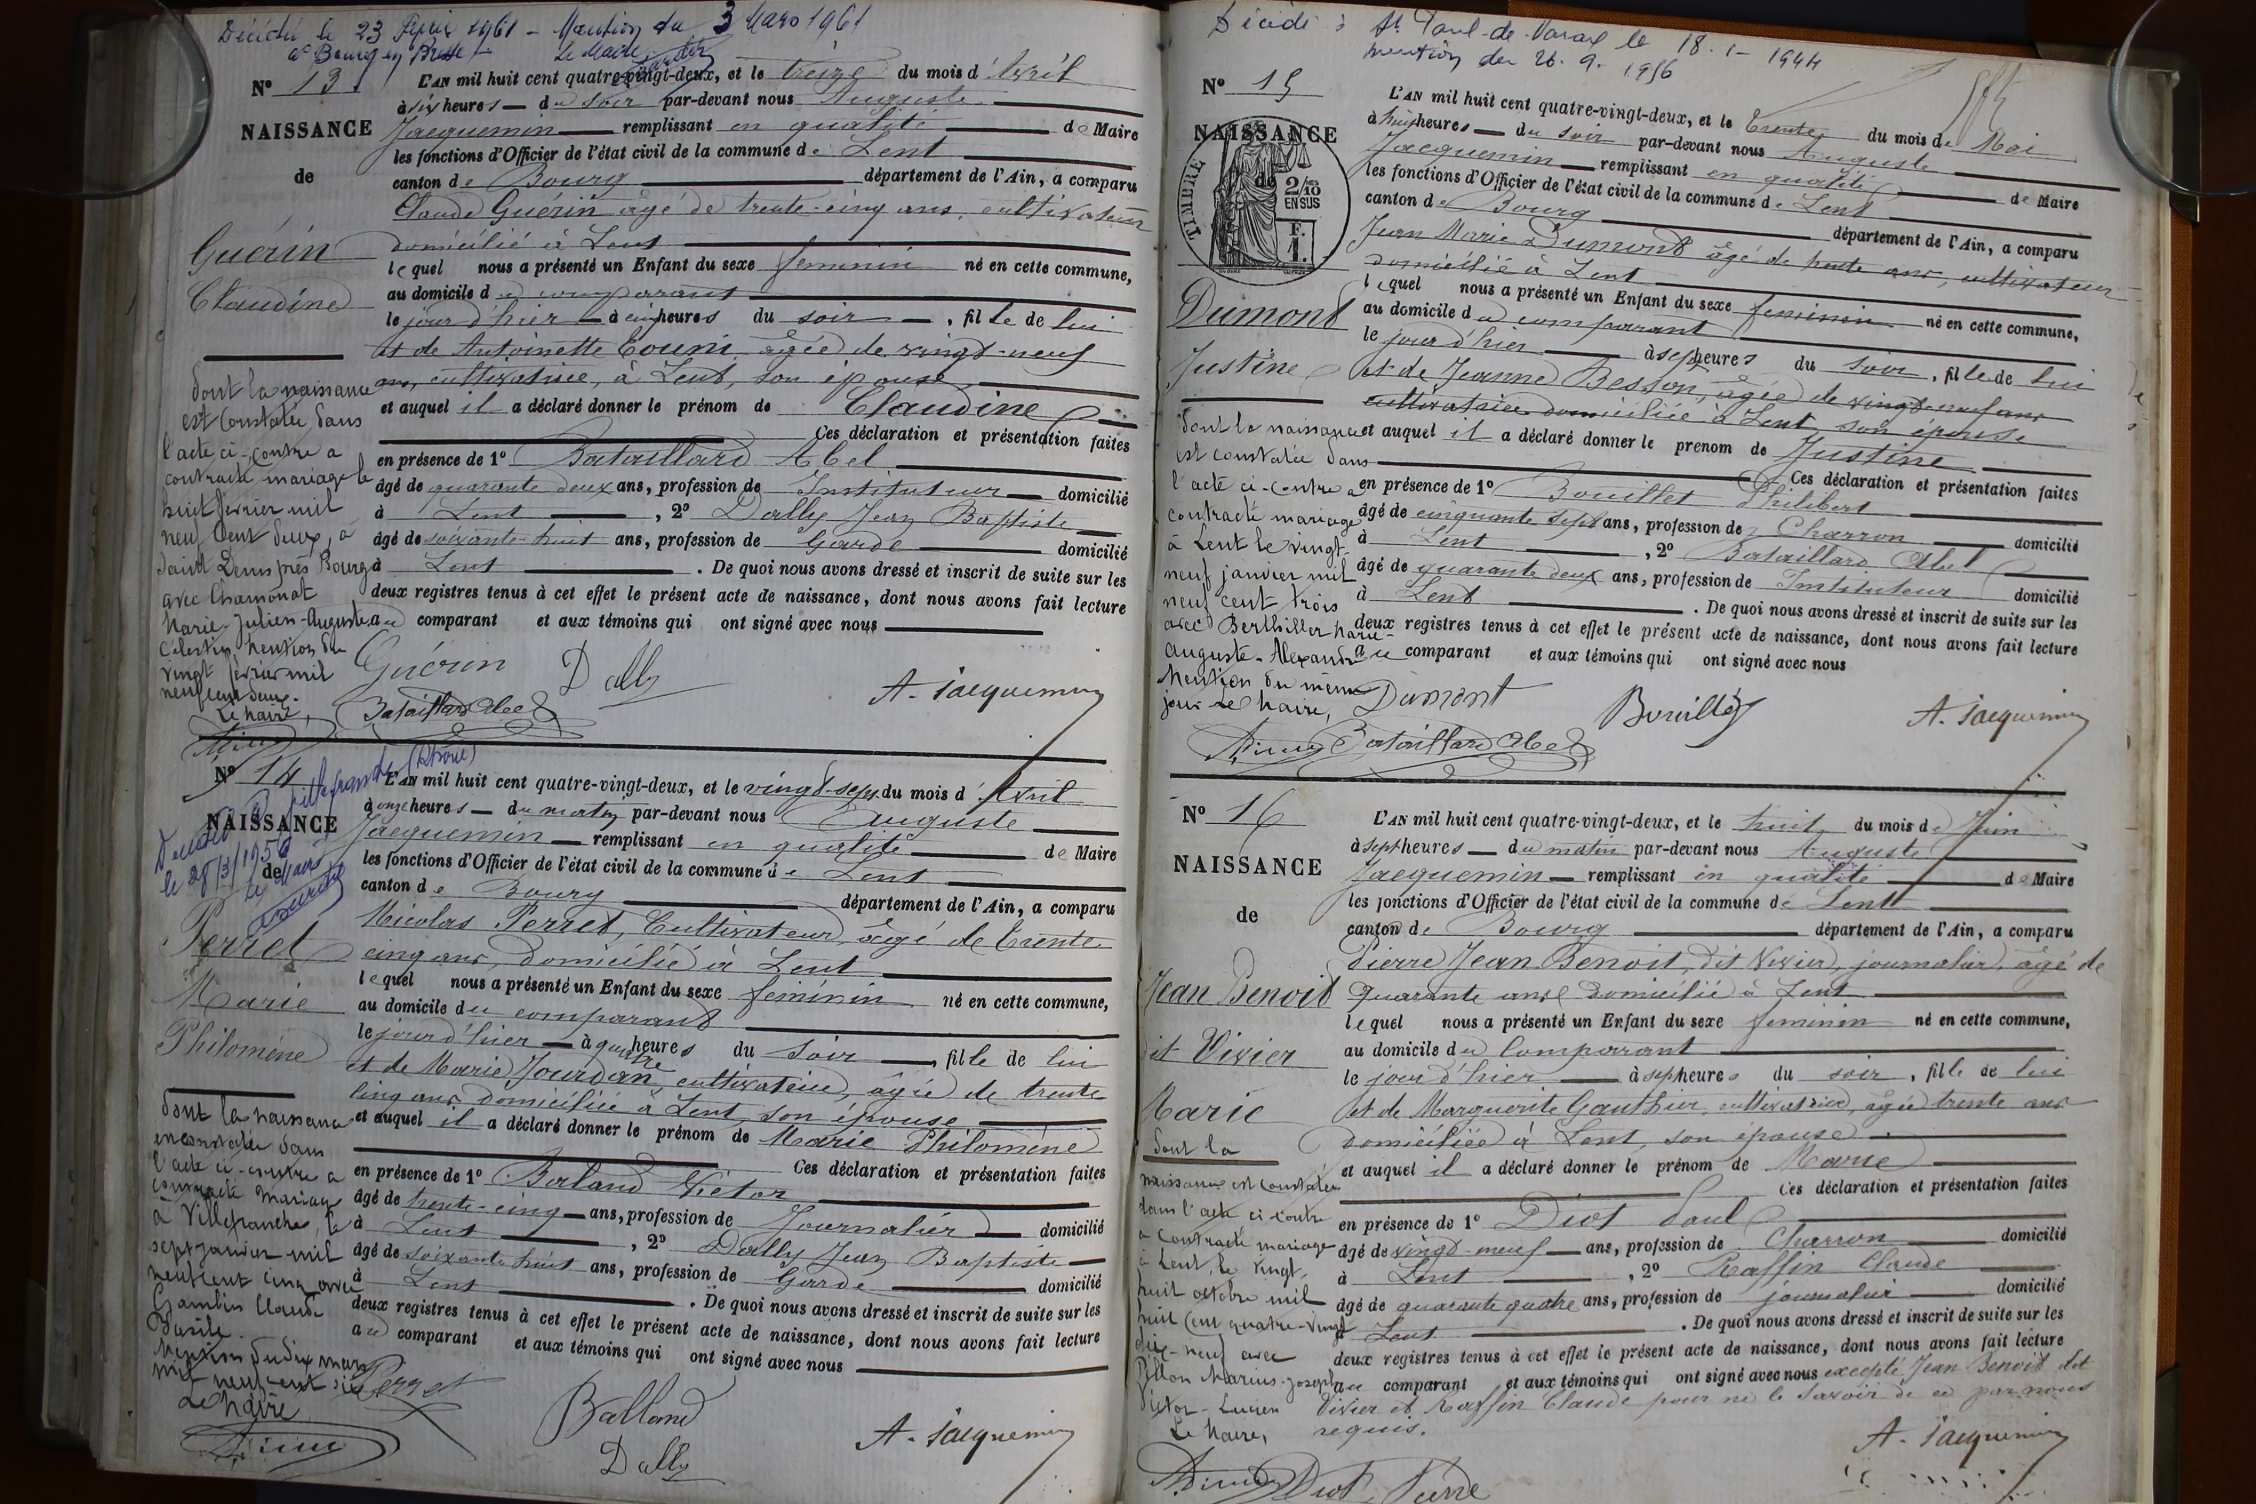 Décédée le 23 Février 1961 - Mention du 3 Mars 1961
à Bourg en Bresse Le Maire,
N° 13
NAISSANCE
de
Guérin
Claudine
dont la naissance
est constatée dans
l'acte ci-contre a
contracté mariage le
huit février mil
neuf cent deux, à
Saint Denis près Bourg
avec Chamonat
Marie-Julien-Auguste
Célestin. Mention du
vingt février mil
neuf cent deux.
Le Maire,
L'AN mil huit cent quatre-vingt-deux, et le treize du mois d'Avril
à six heures du soir par-devant nous Auguste
Jacquemin remplissant en qualité de Maire
les fonctions d'Officier de l'état civil de la commune de Lent
canton de Bourg département de l'Ain, a comparu
Claude Guérin âgé de trente-cinq ans, cultivateur
domicilié à Lent
lequel nous a présenté un Enfant du sexe féminin né en cette commune,
au domicile du comparant
le jour d'hier à cinq heures du soir, fille de lui
et de Antoinette âgée de vingt-neuf
ans, cultivatrice, à Lent, son épouse
et auquel il a déclaré donner le prénom de Claudine
Ces déclaration et présentation faites
en présence de 1° Bataillard Abel
âgé de quarante deux ans, profession de Instituteur domicilié
à Lent, 2° Dally Jean Baptiste
âgé de soixante-huit ans, profession de Garde domicilié
à Lent. De quoi nous avons dressé et inscrit de suite sur les
deux registres tenus à cet effet le présent acte de naissance, dont nous avons fait lecture
au comparant et aux témoins qui ont signé avec nous
Guérin Dally
Bataillard Abel A. Jacquemin
N° 14
NAISSANCE
de
Décédée à Villefranche (Rhône)
le 28/3/1956
Le Maire
Perret
Marie
Philomène
dont la naissance
est constatée dans
l'acte ci-contre a
contracté mariage
à Villefranche, le
sept janvier mil
neuf cent cinq avec
Gambin Claude
Basile.
Mention du dix mars
mil neuf cent six
Le Maire
L'AN mil huit cent quatre-vingt-deux, et le vingt-sept du mois d'Avril
à onze heures du matin par-devant nous Auguste
Jacquemin remplissant en qualité de Maire
les fonctions d'Officier de l'état civil de la commune de Lent
canton de Bourg département de l'Ain, a comparu
Nicolas Perret, Cultivateur, âgé de trente
cinq ans, domicilié à Lent
lequel nous a présenté un Enfant du sexe féminin né en cette commune,
au domicile du comparant
le jour d'hier à quatre heures du soir, fille de lui
et de Marie Jourdan, cultivatrice, âgée de trente
cinq ans, domiciliée à Lent, son épouse
et auquel il a déclaré donner le prénom de Marie Philomène
Ces déclaration et présentation faites
en présence de 1° Balland Victor
âgé de trente-cinq ans, profession de Journalier domicilié
à Lent, 2° Dally Jean Baptiste
âgé de soixante huit ans, profession de Garde domicilié
à Lent. De quoi nous avons dressé et inscrit de suite sur les
deux registres tenus à cet effet le présent acte de naissance, dont nous avons fait lecture
au comparant et aux témoins qui ont signé avec nous
Perret Balland
Dally A. Jacquemin
Décédée à St Paul-de-Varax le 18-1-1944
mention du 26.9.1956
N° 15
NAISSANCE
de
TIMBRE
2/10 EN SUS
F. 1.
Dumont
Justine
dont la naissance
est constatée dans
l'acte ci-contre a
contracté mariage
à Lent le vingt-
neuf janvier mil
neuf cent trois
avec Berthillier Marie-
Auguste-Alexandre
Mention du même
jour Le Maire,
L'AN mil huit cent quatre-vingt-deux, et le trente du mois de Mai
à huit heures du soir par-devant nous Auguste
Jacquemin remplissant en qualité de Maire
les fonctions d'Officier de l'état civil de la commune de Lent
canton de Bourg département de l'Ain, a comparu
Jean Marie Dumont âgé de trente ans, cultivateur
domicilié à Lent
lequel nous a présenté un Enfant du sexe féminin né en cette commune,
au domicile du comparant
le jour d'hier à sept heures du soir, fille de lui
et de Jeanne Besson, âgée de vingt-neuf ans
cultivatrice domiciliée à Lent, son épouse
et auquel il a déclaré donner le prenom de Justine
Ces déclaration et présentation faites
en présence de 1° Bouillet Philibert
âgé de cinquante sept ans, profession de Charron domicilié
à Lent, 2° Bataillard Abel
âgé de quarante deux ans, profession de Instituteur domicilié
à Lent. De quoi nous avons dressé et inscrit de suite sur les
deux registres tenus à cet effet le présent acte de naissance, dont nous avons fait lecture
au comparant et aux témoins qui ont signé avec nous
Dumont Bouillet A. Jacquemin
Bataillard Abel
N° 16
NAISSANCE
de
Jean Benoit
dit Vivier
Marie
dont la
naissance est constatée
dans l'acte ci-contre
a contracté mariage
à Lent, le vingt-
huit octobre mil
huit cent quatre-vingt
dix-neuf avec
Pillon Marius-Joseph
Victor-Lucien
Le Maire,
L'AN mil huit cent quatre-vingt-deux, et le huit du mois de Juin
à sept heures du matin par-devant nous Auguste
Jacquemin remplissant en qualité de Maire
les fonctions d'Officier de l'état civil de la commune de Lent
canton de Bourg département de l'Ain, a comparu
Pierre Jean Benoit, dit Vivier, journalier, âgé de
quarante ans domicilié à Lent
lequel nous a présenté un Enfant du sexe féminin né en cette commune,
au domicile du Comparant
le jour d'hier à sept heures du soir, fille de lui
et de Marguerite Gauthier, cultivatrice, âgée trente ans
domiciliée à Lent, son épouse
et auquel il a déclaré donner le prénom de Marie
Ces déclaration et présentation faites
en présence de 1° Diot Paul
âgé de vingt-neuf ans, profession de Charron domicilié
à Lent, 2° Raffin Claude
âgé de quarante quatre ans, profession de journalier domicilié
à Lent. De quoi nous avons dressé et inscrit de suite sur les
deux registres tenus à cet effet le présent acte de naissance, dont nous avons fait lecture
au comparant et aux témoins qui ont signé avec nous excepté Jean Benoit dit
Vivier et Raffin Claude pour ne le savoir de ce par nous
requis.
A. Jacquemin
Diot